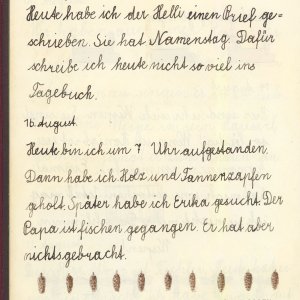 Heute habe ich der Helli einen Brief ge=
schrieben. Sie hat Namenstag. Dafür
schreibe ich heute nicht so viel ins
Tagebuch.
16. August.
Heute bin ich um 7 Uhr aufgestanden.
Dann habe ich Holz und Tannenzapfen
geholt. Später habe ich Erika gesucht. Der
Papa ist fischen gegangen. Er hat aber
nichts gebracht.